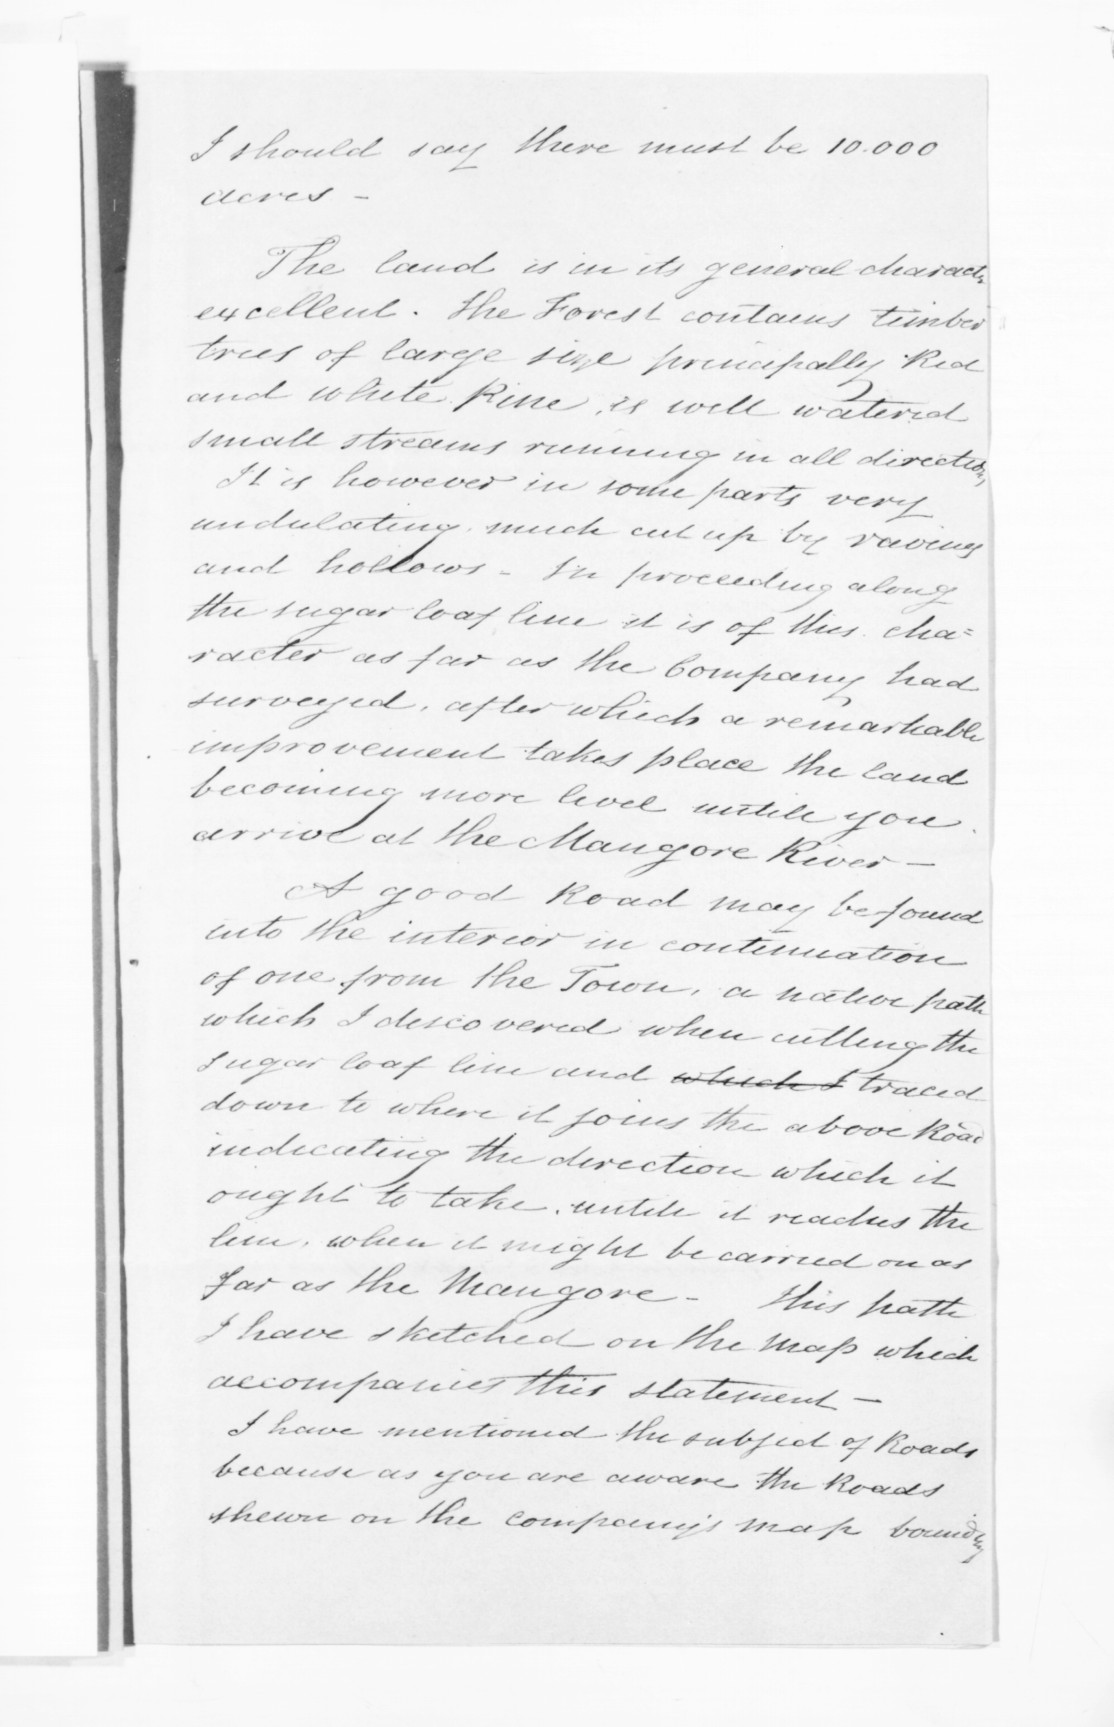 I should say there must be 10.000
acres -
The land is in its general charactr
excellent. The Forest contains timber
trees of large size principally Red
and white Pine, is well watered
small streams running in all directions
It is however in some parts very
undulating, much cut up by ravines
and hollows - In proceeding along
the sugar loaf line it is of this cha=
racter as far as the Company had
surveyed, after which a remarkable
improvement takes place the land
becoming more level untill you
arrive at the Mangore River -
A good Road may be found
into the interior in continuation
of one from the Town, a native path
which I discovered when cutting the
sugar loaf line and which I traced
down to where it joins the above Road
indicating the direction which it
ought to take, untill it reaches the
line, when it might be carried on as
far as the Mangore - This path
I have sketched on the Map which
accompanies this statement -
I have mentioned the subject of Roads
because as you are aware the Roads
shewn on the company's map bounding